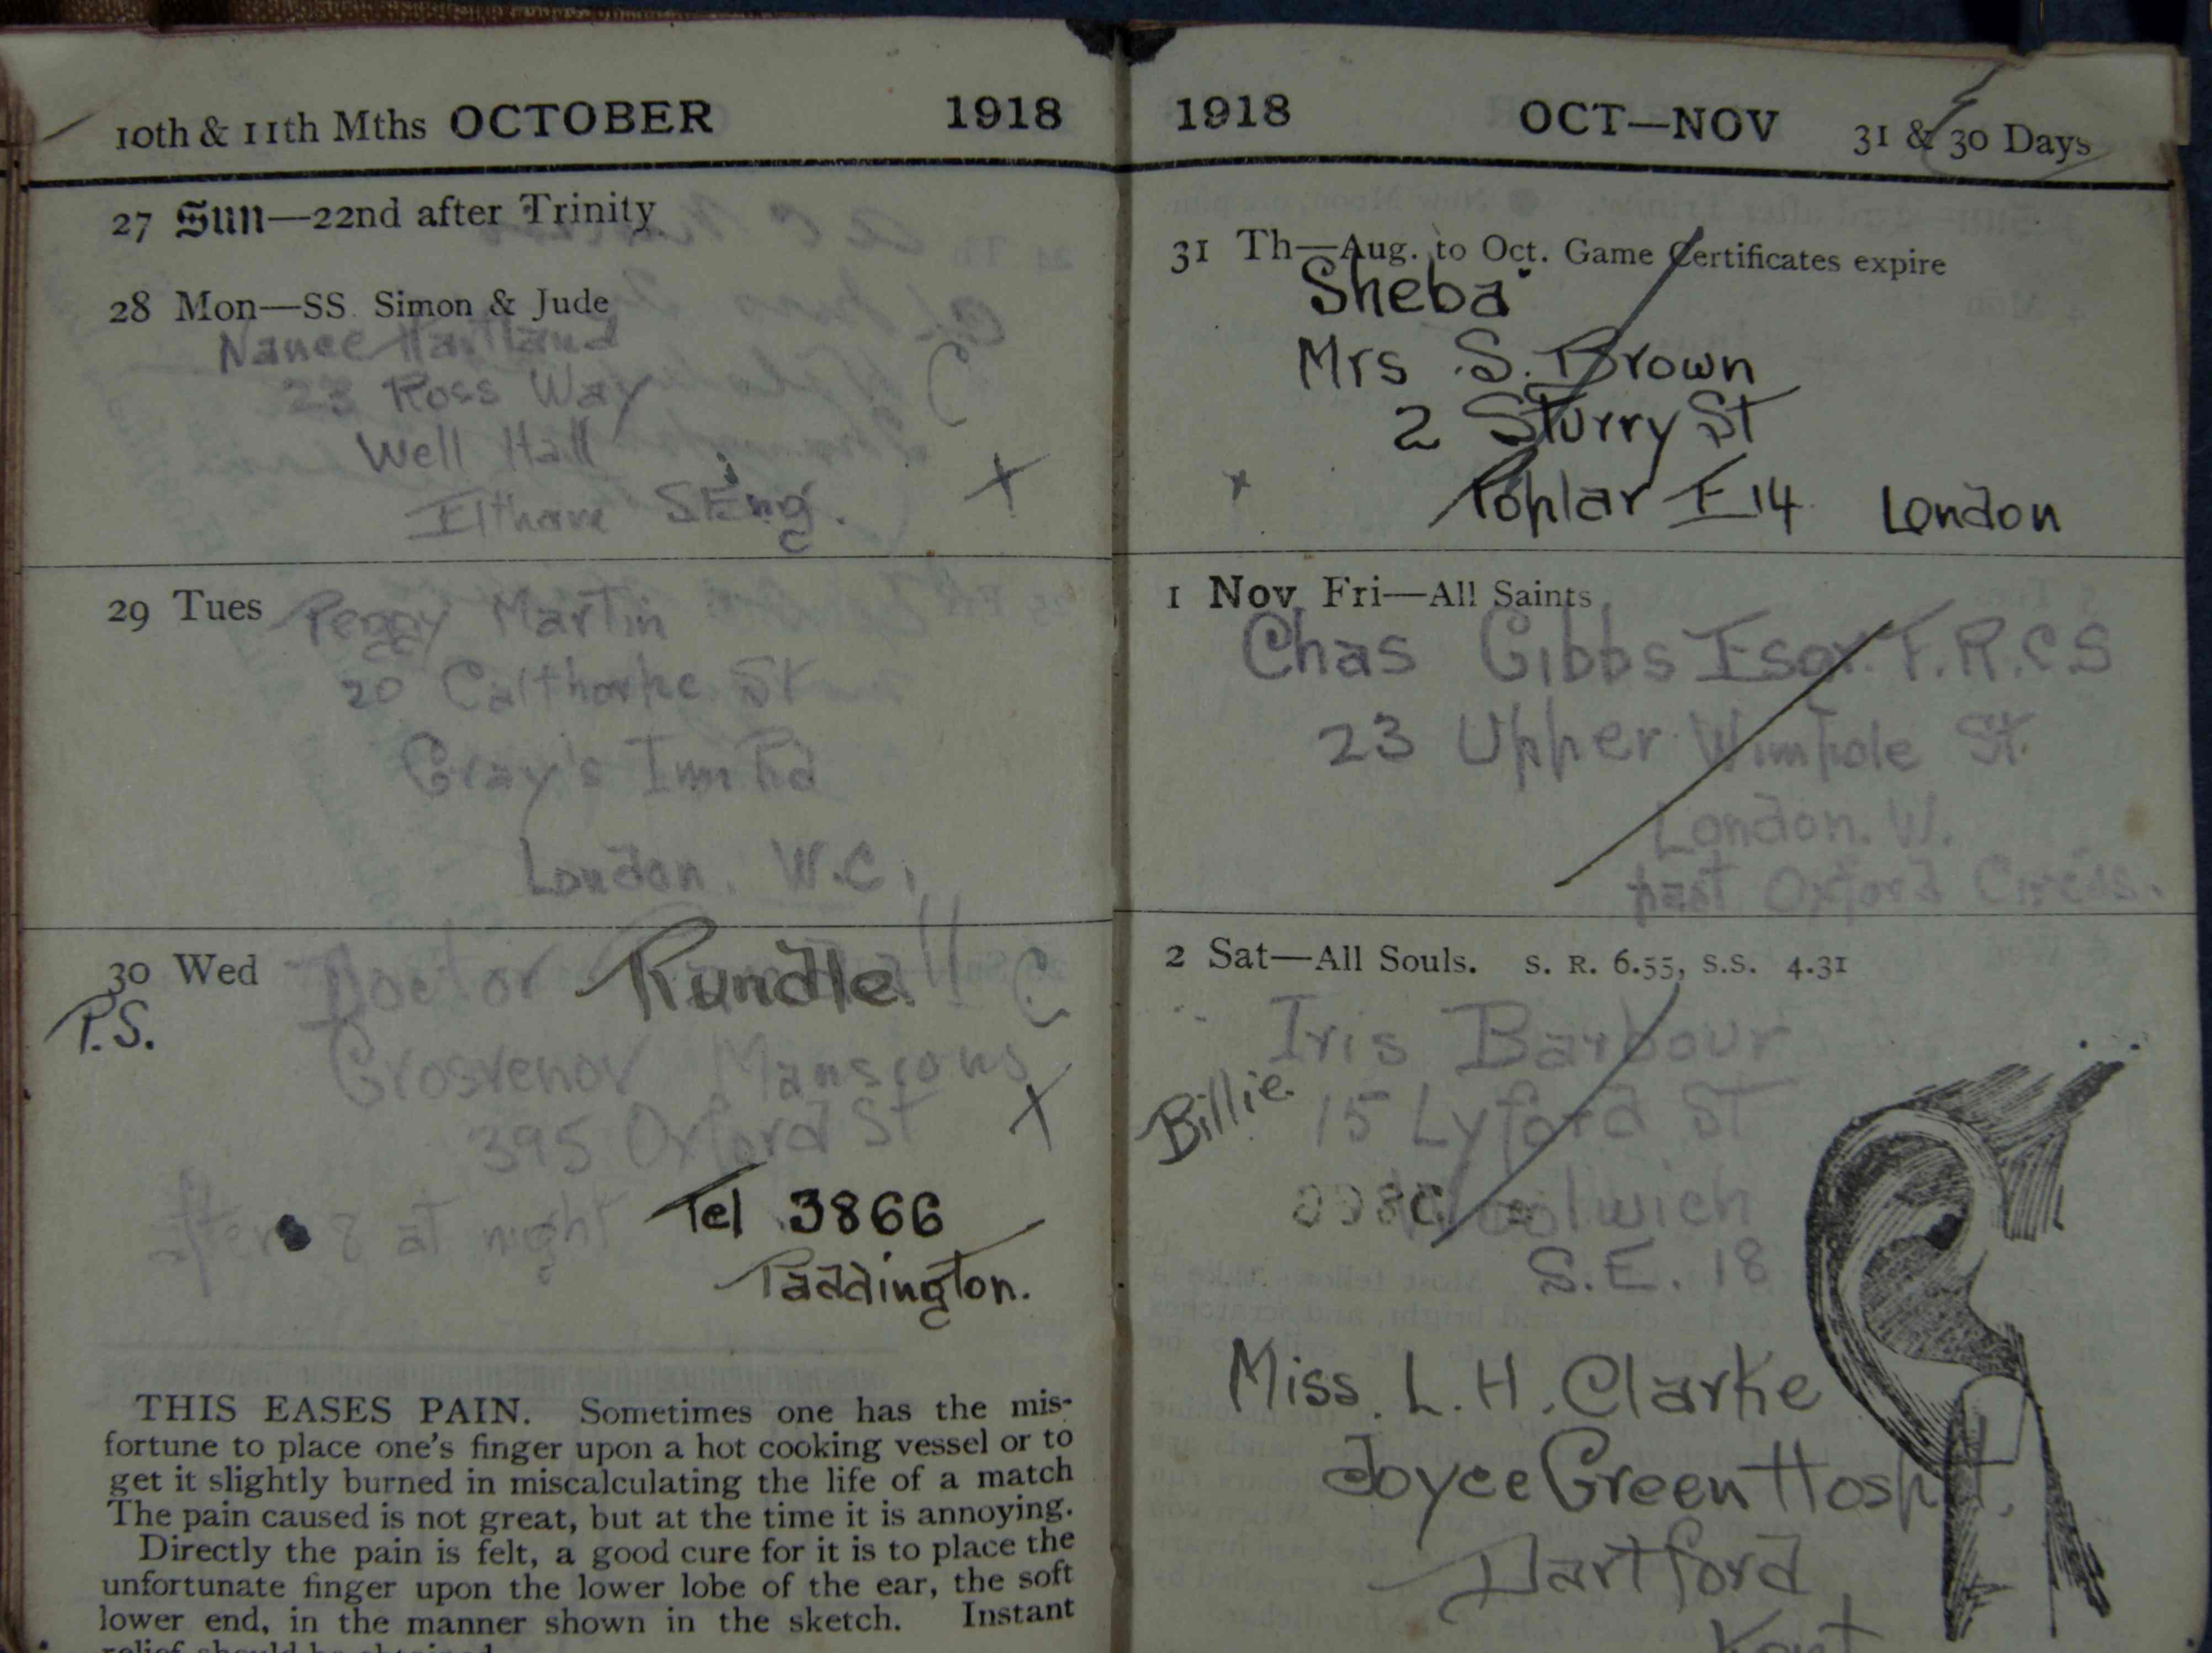 10th & 11th Mths OCTOBER 1918
27 Sun—22nd after Trinity
28 Mon—SS. Simon & Jude
Nance Hartland
23 Ross Way
Well Hall
Eltham SEng.
C
+
29 Tues
Peggy Martin
20 Calthorpe St
Gray's Inn Rd
London. W.C.
30 Wed
P.S.
Doctor Rundle.
C
Grosvenor Mansions
395 Oxford St
x
after 8 at night
Tel 3866
Paddington.
THIS EASES PAIN. Sometimes one has the mis-
fortune to place one's finger upon a hot cooking vessel or to
get it slightly burned in miscalculating the life of a match
The pain caused is not great, but at the time it is annoying.
Directly the pain is felt, a good cure for it is to place the
unfortunate finger upon the lower lobe of the ear, the soft
lower end, in the manner shown in the sketch. Instant
relief should be obtained
1918 OCT—NOV 31 & 30 Days
31 Th—Aug. to Oct. Game Certificates expire
Sheba
Mrs S. Brown
2 Sturry St
x Poplar E14 London
1 Nov Fri—All Saints
Chas Gibbs Esqr. F.R.C.S
23 Upper Wimpole St.
London. W.
past Oxford Circus.
2 Sat—All Souls. S. R. 6.55, S.S. 4.31
Iris Barbour
Billie.
15 Lyford St
Woolwich
S.E. 18
Miss. L. H. Clarke
Joyce Green Hospt.
Dartford
Kent